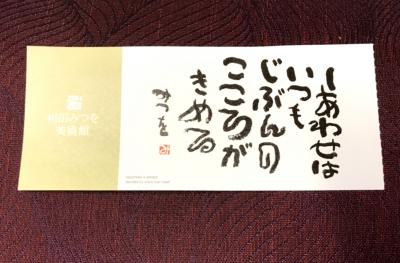 しあわせは
いつも
じぶんの
こころが
きめる
みつを
相田みつを
美術館